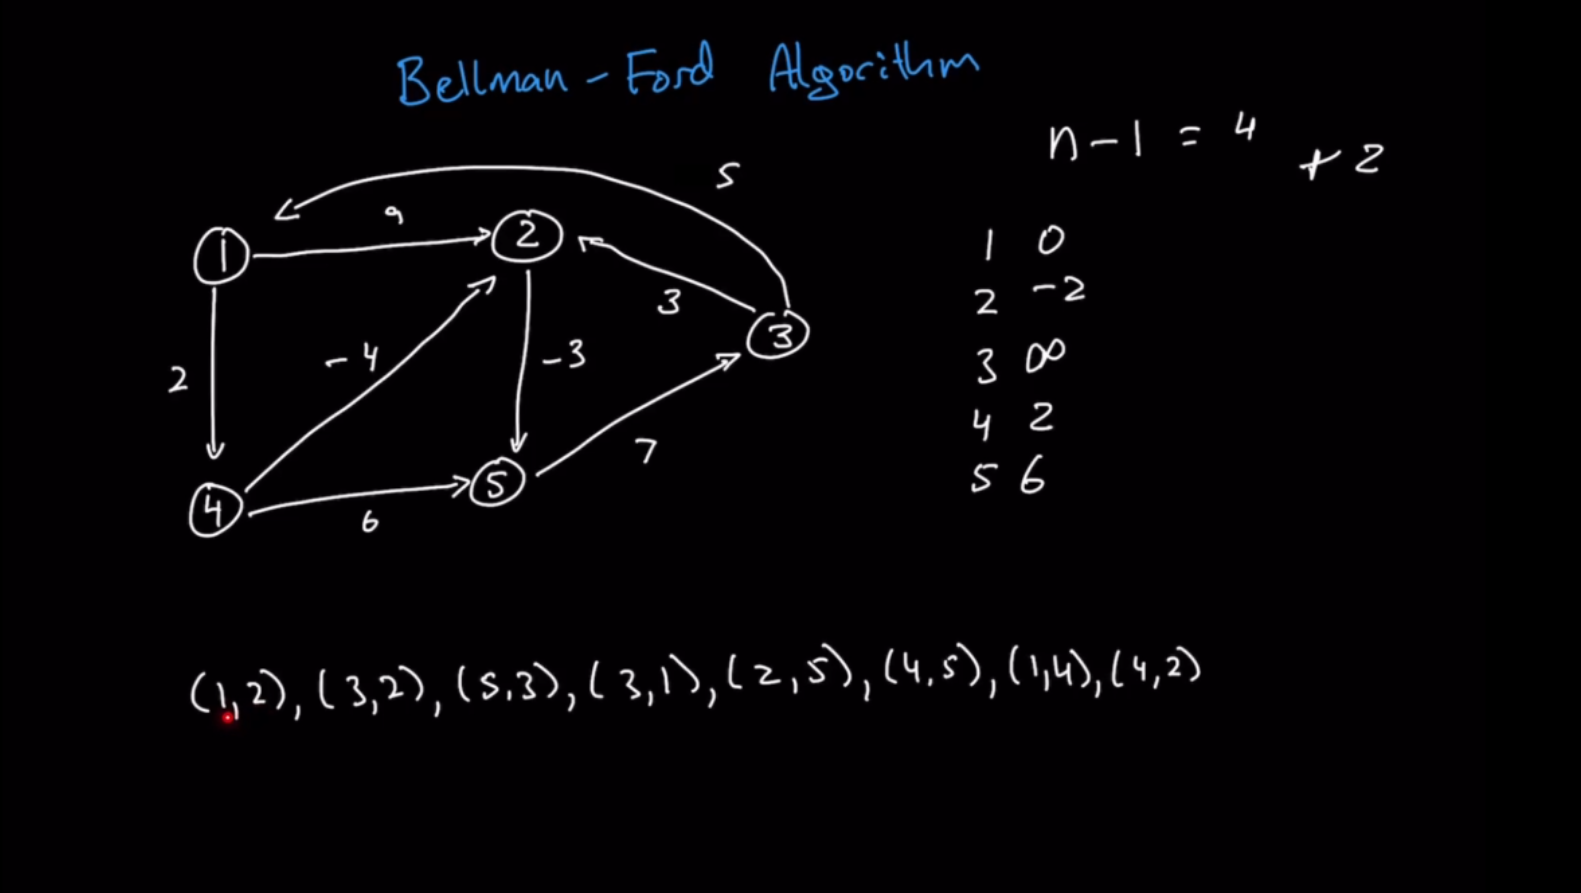 Bellman - Ford Algorithm
n - 1 = 4
+ 2
5
9
1
2
3
3
2
- 4
- 3
7
4
5
6
1 0
2 -2
3 ∞
4 2
5 6
(1,2), (3,2), (5,3), (3,1), (2,5), (4,5), (1,4), (4,2)